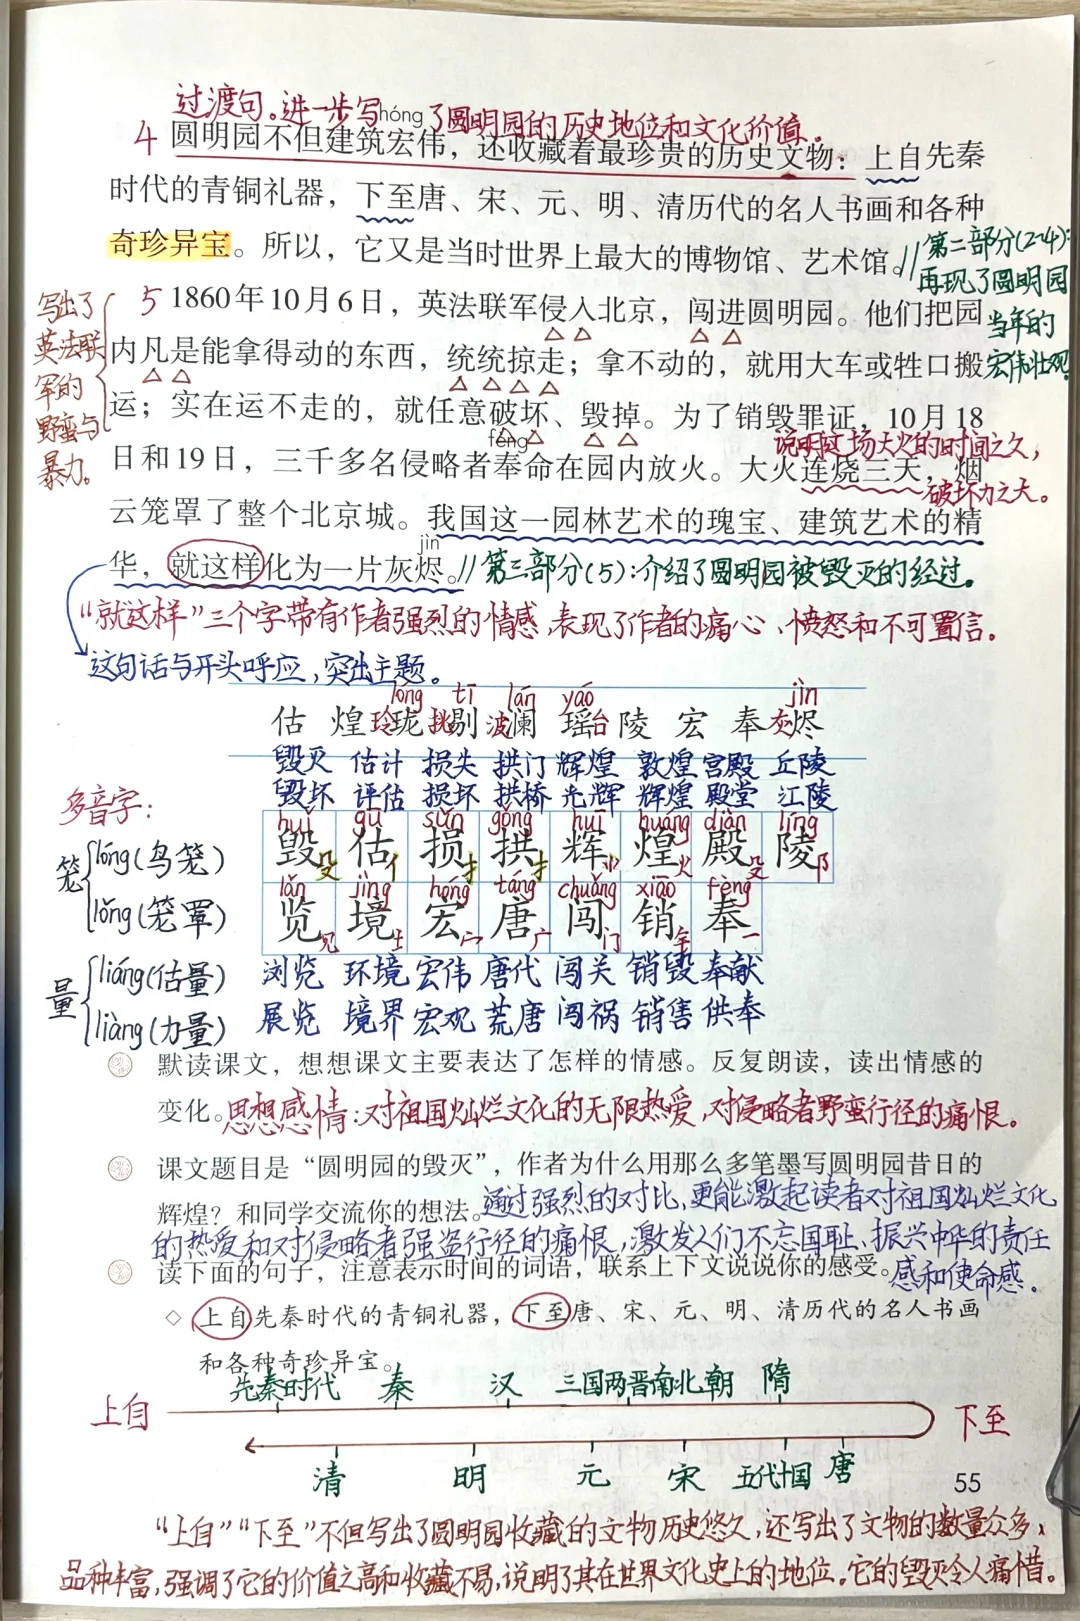 过渡句。进一步写了圆明园的历史地位和文化价值。
hóng
4 圆明园不但建筑宏伟，还收藏着最珍贵的历史文物：上自先秦
时代的青铜礼器，下至唐、宋、元、明、清历代的名人书画和各种
奇珍异宝。所以，它又是当时世界上最大的博物馆、艺术馆。//
第二部分(2-4)：
再现了圆明园
当年的
宏伟壮观。
写出了
英法联
军的
野蛮与
暴力。
5 1860年10月6日，英法联军侵入北京，闯进圆明园。他们把园
内凡是能拿得动的东西，统统掠走；拿不动的，就用大车或牲口搬
运；实在运不走的，就任意破坏、毁掉。为了销毁罪证，10月18
fèng
说明这场大火的时间之久，
日和19日，三千多名侵略者奉命在园内放火。大火连烧三天，烟
破坏力之大。
云笼罩了整个北京城。我国这一园林艺术的瑰宝、建筑艺术的精
jìn
华，就这样化为一片灰烬。//第三部分(5)：介绍了圆明园被毁灭的经过。
“就这样”三个字带有作者强烈的情感，表现了作者的痛心、愤怒和不可置信。
这句话与开头呼应，突出主题。
lóng tī lán yáo jìn
估 煌 玲珑 挑剔 波澜 瑶台 陵 宏 奉 灰烬
毁灭 估计 损失 拱门 辉煌 敦煌 宫殿 丘陵
毁坏 评估 损坏 拱桥 光辉 辉煌 殿堂 江陵
多音字：
huǐ gū sǔn gǒng huī huáng diàn líng
毁殳 估亻 损扌 拱扌 辉⺌ 煌火 殿殳 陵阝
笼 lóng(鸟笼)
lǒng(笼罩)
lǎn jìng hóng táng chuǎng xiāo fèng
览见 境土 宏宀 唐广 闯门 销钅 奉一
量 liáng(估量)
liàng(力量)
浏览 环境 宏伟 唐代 闯关 销毁 奉献
展览 境界 宏观 荒唐 闯祸 销售 供奉
默读课文，想想课文主要表达了怎样的情感。反复朗读，读出情感的
变化。思想感情：对祖国灿烂文化的无限热爱，对侵略者野蛮行径的痛恨。
课文题目是“圆明园的毁灭”，作者为什么用那么多笔墨写圆明园昔日的
辉煌？和同学交流你的想法。通过强烈的对比，更能激起读者对祖国灿烂文化
的热爱和对侵略者强盗行径的痛恨，激发人们不忘国耻、振兴中华的责任
读下面的句子，注意表示时间的词语，联系上下文说说你的感受。感和使命感。
◇ 上自先秦时代的青铜礼器，下至唐、宋、元、明、清历代的名人书画
和各种奇珍异宝。
先秦时代 秦 汉 三国两晋南北朝 隋
上自 下至
清 明 元 宋 五代十国 唐
55
“上自”“下至”不但写出了圆明园收藏的文物历史悠久，还写出了文物的数量众多、
品种丰富，强调了它的价值之高和收藏不易，说明了其在世界文化史上的地位。它的毁灭令人痛惜。